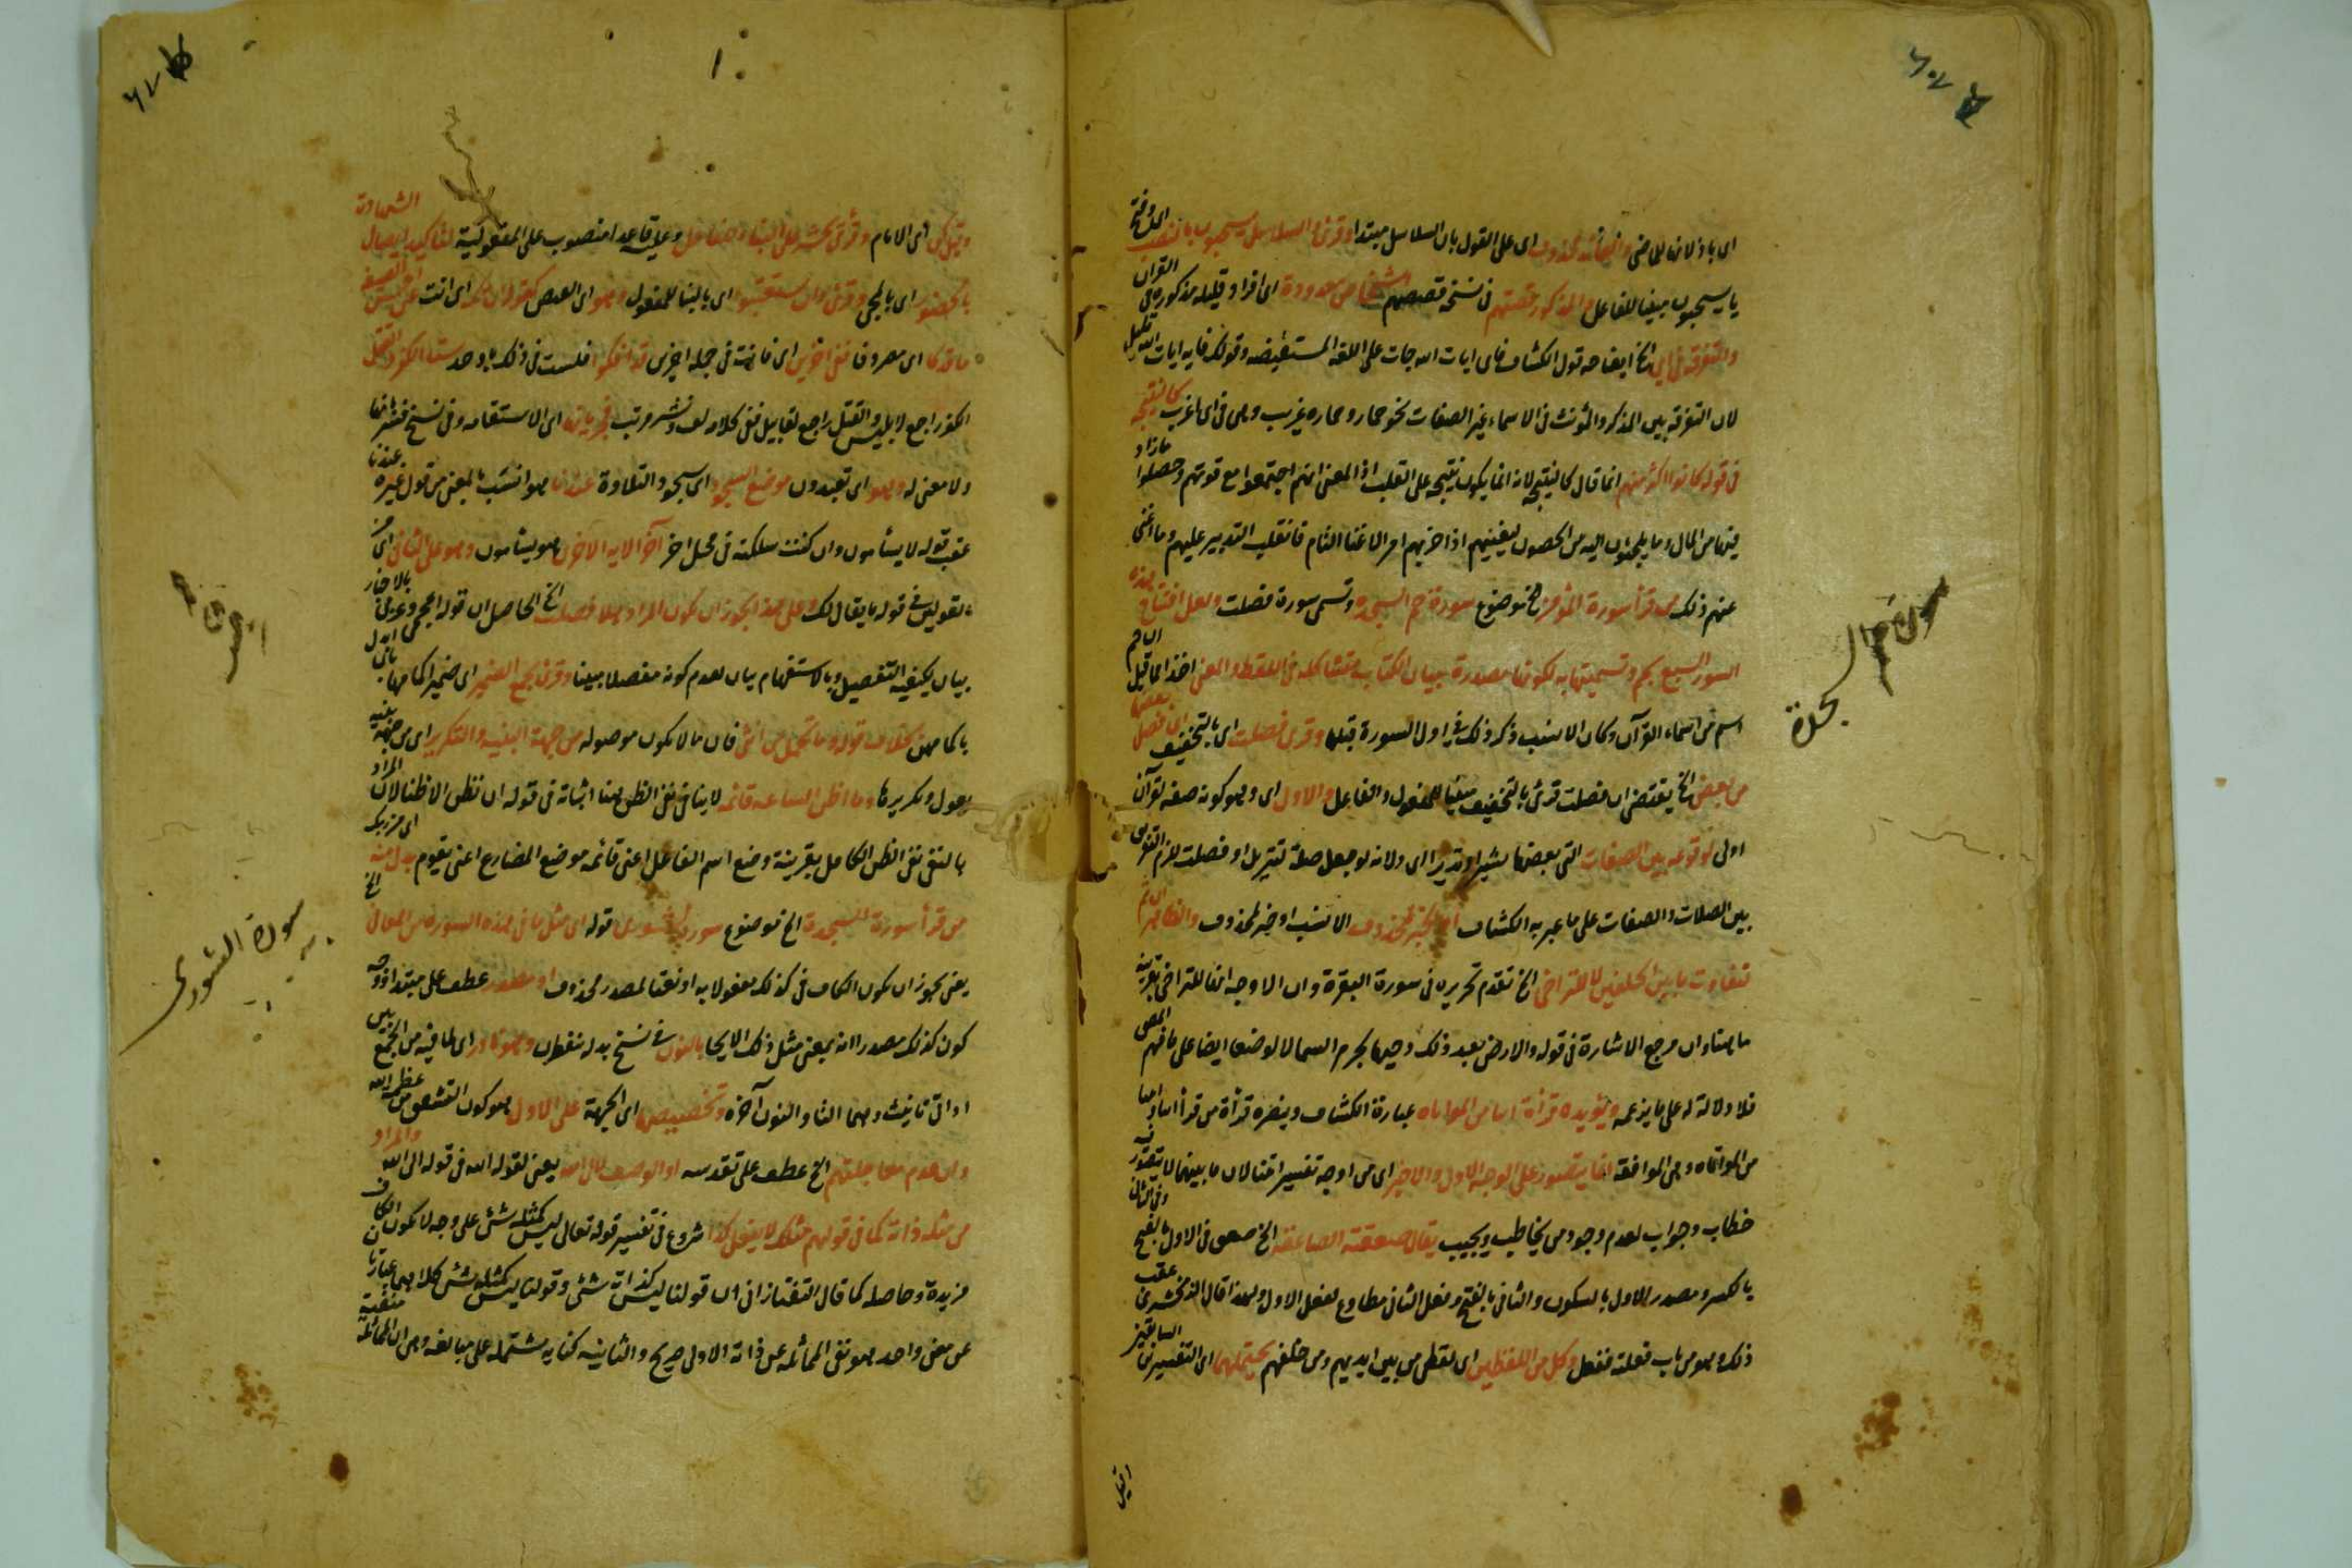 اى باذلانها للماضى والعائد محذوف اى على القول بان السلاسل مبتدا وقرئ والسلاسل يسحبون بالنصب وفتح
يا يسحبون مبنيا للفاعل والمذكور قصتهم فى نسخة قصصهم اشخاص معدودة اى افراد قليله مذكورة فى القرآن
والتفرقة فى اى الخ ايضاحه قول الكشاف فاى ايات الله جات على اللغه المستفيضه وقولك فايه ايات الله قليل
لان التفرقة بين المذكر والمؤنث فى الاسماء غير الصفات نحو حمار وحماره غريب وهى فى اى اغرب كالنتيجة
فى قوله كانوا اكثر منهم انما قال كالنتيجه لانه انما يكون نتيجه على القلب اذ المعنى انهم اجتمعوا مع قوتهم وحصلوا مازاد
فيها من المال وما يلجئون اليه من الحصون ليغنيهم اذا حزبهم امر الاغنا التام فانقلب التدبير عليهم وما اغنى
عنهم ذلك من قرأ سورة المؤمن الخ موضوع سورة حم السجدة وتسمى سورة فصلت ولعل افتتاح هذه
السور السبع بحم وتسميتها به لكونها مصدرة ببيان الكتاب متشاكله فى اللفظ والمعنى اخذا لما قيل ان حم
اسم من اسماء القرآن وكان الانسب ذكر ذلك فى اول السورة قبلها وقرى فصلت اى بالتخفيف اى فصل بعضها
من بعض الخ يقتضى ان فصلت قرئ بالتخفيف مبنيا للمفعول والفاعل والاول اى وهو كونه صفه لقرآن
اولى لوقوعه بين الصفات التى بعضها بشيرا ونذيرا اى ولانه لو جعل صلة تنزيل او فصلت لزم التفريق
بين الصلات والصفات على ما عبر به الكشاف او خبر محذوف الانسب او خبر لمحذوف والظاهر ان ثم
لتفاوت ما بين الخلقين لا للتراخى الخ تقدم تحريره فى سورة البقرة وان الاوجه انها للتراخى بقرينة
ما هنا وان مرجع الاشارة فى قوله والارض بعد ذلك دحيها بجرم السما لا لوضعها ايضا على ما فهم المص
فلا دلالة له على ما يزعمه ويؤيده قرأة اتيا من المواتاه عبارة الكشاف وينصره قرأة من قرأ اتيا واتيا
من المواتاه وهى الموافقة انما يتصور على الوجه الاول والاخير اى من اوجه تفسير ائتيا لان ما بينهما لا يتصور فيه
خطاب وجواب لعدم وجود من يخاطب ويجيب يقال صعقته الصاعقة الخ صعق فى الاول بالفتح وفى الثانى
بالكسر ومصدر الاول بالسكون والثانى بالفتح وفعل الثانى مطاوع لفعل الاول ولهذا قال الزمخشرى عقب
ذلك وهو من باب فعلته ففعل وكل من اللفظين اى لفظى من بين ايديهم ومن خلفهم يحتملهما اى التفسيرين السابقين
وقيل
سورة حم السجدة
وقيل كن اى الامام وقرئ يحشر على البناء للفاعل وعلى قاعدة منصوب على المفعولية لتاكيد ايصال الشهادة
بالحضور اى بالمجى وقرئ وان يستعتبوا اى بالبنا للمفعول وهو اى العصى كقوله ان تك اى انت عن احسن الصنيعة
مافوكا اى مصروفا ففى اخرين اى فانت فى جملة اخرين قد افكوا فلست فى ذلك باوحد سنا الكفر والقتل
الكفر راجع لابليس والقتل راجع لقابيل ففى كلامه لف ونشر مرتب فى رباته اى الاستقامه وفى نسخ فسرها
ولا معنى له وهو اى تعبدون موضع السجود اى سجود التلاوة عندنا هو انسب بالمعنى من قول غيره عندنا
عقب قوله لا يسأمون وان كنت سلكته فى محل اخر آخر الاية الاخرى هو يسأمون وهو على الثانى اى
تقوليه فى قوله ما يقال لك وعلى هذا يجوز ان يكون المراد هلا فصلت الخ الحاصل ان قوله اعجمى وعربى بالاخبار
بيان لكيفية التفصيل وبالاستفهام بيان لعدم كونه مفصلا مبينا وقرئ بجمع الضمير اى ضمير اكمامها
باكمامهن بخلاف قوله وما تحمل من انثى فان ما لا يكون موصوله من جهة البنيه والتكرير اى من جهة
وما اظن الساعه قائمة لا ينافى نفى الظن هنا اثباته فى قوله ان نظن الا ظنا لان المراد
بالنفى نفى الظن الكامل بقرينة وضع اسم الفاعل اعنى قائمه موضع المضارع اعنى يقوم
من قرأ سورة السجدة الخ موضوع سورة الشورى قوله اى مثل ما فى هذه السورة من المعانى الخ
يعنى يجوز ان يكون الكاف فى كذلك مفعولا به او نعتا لمصدر محذوف او مصدر عطف على مبتدا ووجه
كون كذلك مصدرا انه بمعنى مثل ذلك الايحا بالنون فى نسخ بدله ينفطرن وهو نادر اى لما فيه من الجمع بين
اداتى تانيث وهما التا والنون آخره وتخصيص اى الجهة على الاول هو كون التشقق من عظمة الله
وان عدم معاجلتهم الخ عطف على تقدسه او الوصف لان الله يعنى لقوله الله فى قوله الى الله والمراد
من مثله ذاته كما فى قولهم مثلك لا يفعل كذا شروع فى تفسير قوله تعالى ليس كمثله شئ على وجه لا يكون الكاف
مزيدة وحاصله كما قال التفتازانى ان قولنا ليس كذاته شئ وقولنا ليس كمثله شئ كلاهما عبارتان
عن معنى واحد هو نفى المماثله عن ذاته الاولى صريح والثانيه كنايه مشتمله على مبالغه وهى ان المماثلة منفية
سورة الشورى